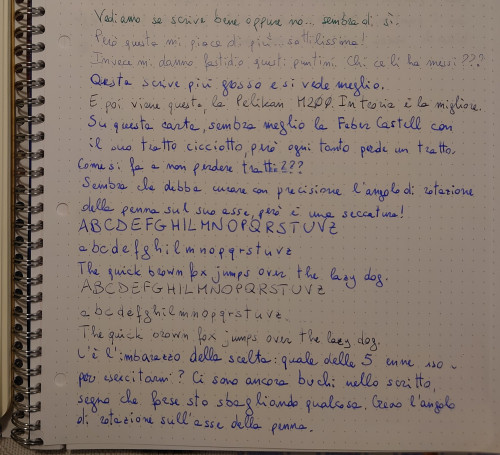 Vediamo se scrive bene oppure no... sembra di sì.
Però questa mi piace di più.. sottilissima!
Invece mi danno fastidio questi puntini. Chi ce li ha messi???
Questa scrive più grosso e si vede meglio.
E poi viene questa, la Pelikan M200. In teoria è la migliore.
Su questa carta, sembra meglio la Faber Castell con
il suo tratto cicciotto, però ogni tanto perde un tratto.
Come si fa a non perdere tratti???
Sembra che debba curare con precisione l'angolo di rotazione
della penna sul suo asse, però è una seccatura!
ABCDEFGHILMNOPQRSTUVZ
abcdefghilmnopqrstuvz
The quick brown fox jumps over the lazy dog.
ABCDEFGHILMNOPQRSTUVZ
abcdefghilmnopqrstuvz.
The quick brown fox jumps over the lazy dog.
C'è l'imbarazzo della scelta: quale delle 5 uso
per esercitarmi? Ci sono ancora buchi nello scritto,
segno che forse sto sbagliando qualcosa. l'angolo
di rotazione sull'asse della penna.